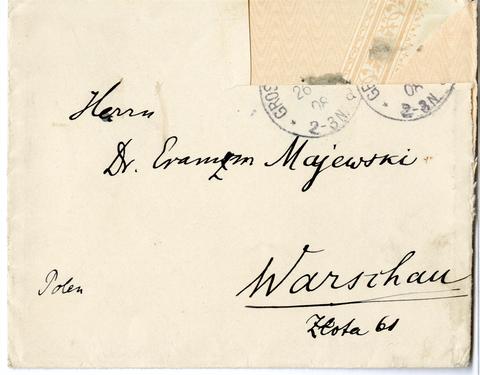 GROS 26 08 * 2-3N.
GR 08 * 2-3N.
Herrn
Dr. Eramzm Majewski
Warschau
Polen
Złota 61